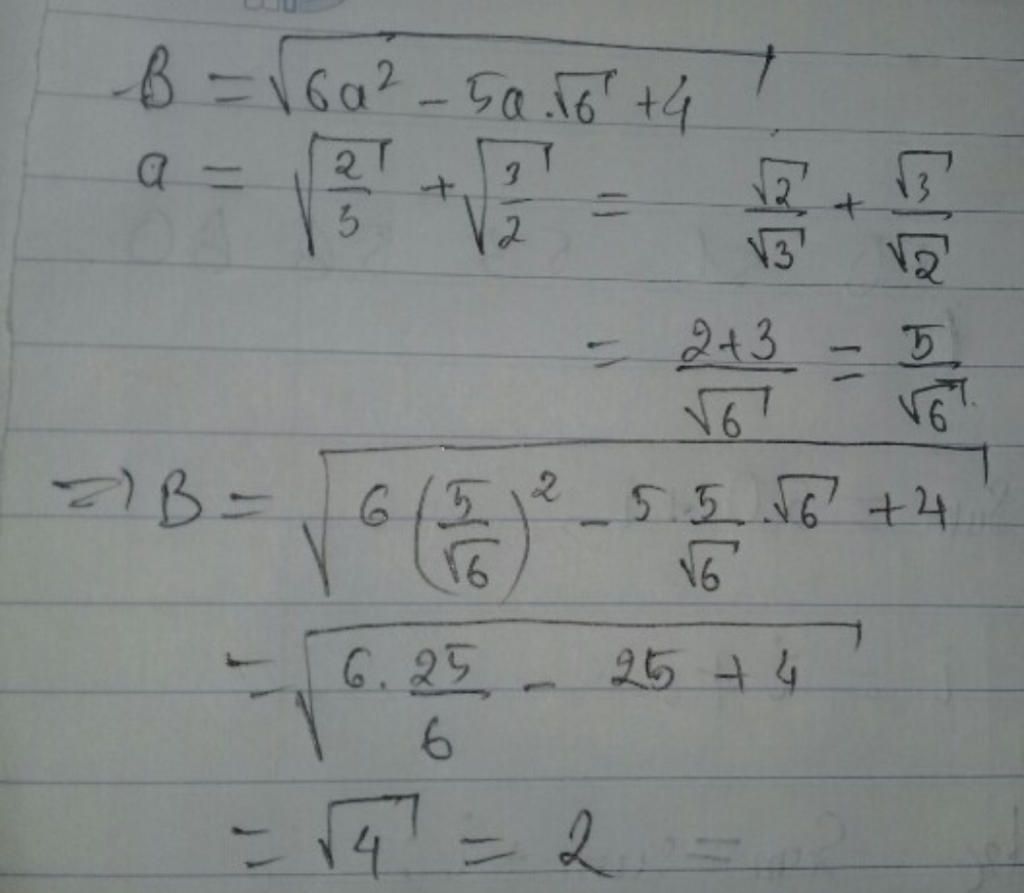 B = √(6a² - 5a.√6 + 4)
a = √(2/3) + √(3/2) = √2/√3 + √3/√2
= (2+3)/√6 = 5/√6.
=> B = √(6(5/√6)² - 5.5/√6.√6 + 4)
= √(6.25/6 - 25 + 4)
= √4 = 2